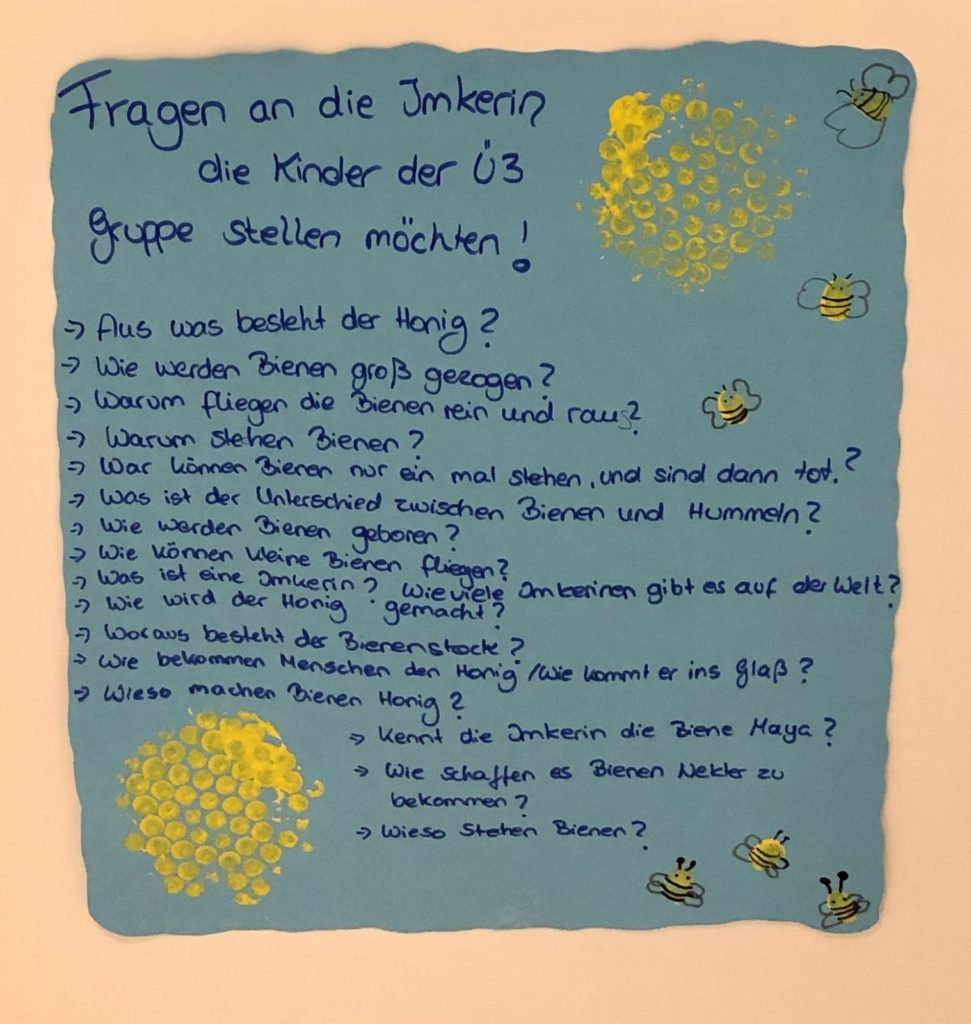 Fragen an die Imkerin
die Kinder der Ü3
Gruppe stellen möchten!
→ Aus was besteht der Honig?
→ Wie werden Bienen groß gezogen?
→ Warum fliegen die Bienen rein und raus?
→ Warum stehen Bienen?
→ War können Bienen nur ein mal stehen, und sind dann tot.?
→ Was ist der Unterschied zwischen Bienen und Hummeln?
→ Wie werden Bienen geboren?
→ Wie können kleine Bienen fliegen?
→ Was ist eine Imkerin? Wieviele Imkerinen gibt es auf der Welt?
→ Wie wird der Honig gemacht?
→ Woraus besteht der Bienenstock?
→ Wie bekommen Menschen den Honig / Wie kommt er ins Glaß?
→ Wieso machen Bienen Honig?
→ Kennt die Imkerin die Biene Maya?
→ Wie schaffen es Bienen Nekter zu
bekommen?
→ Wieso stehen Bienen?